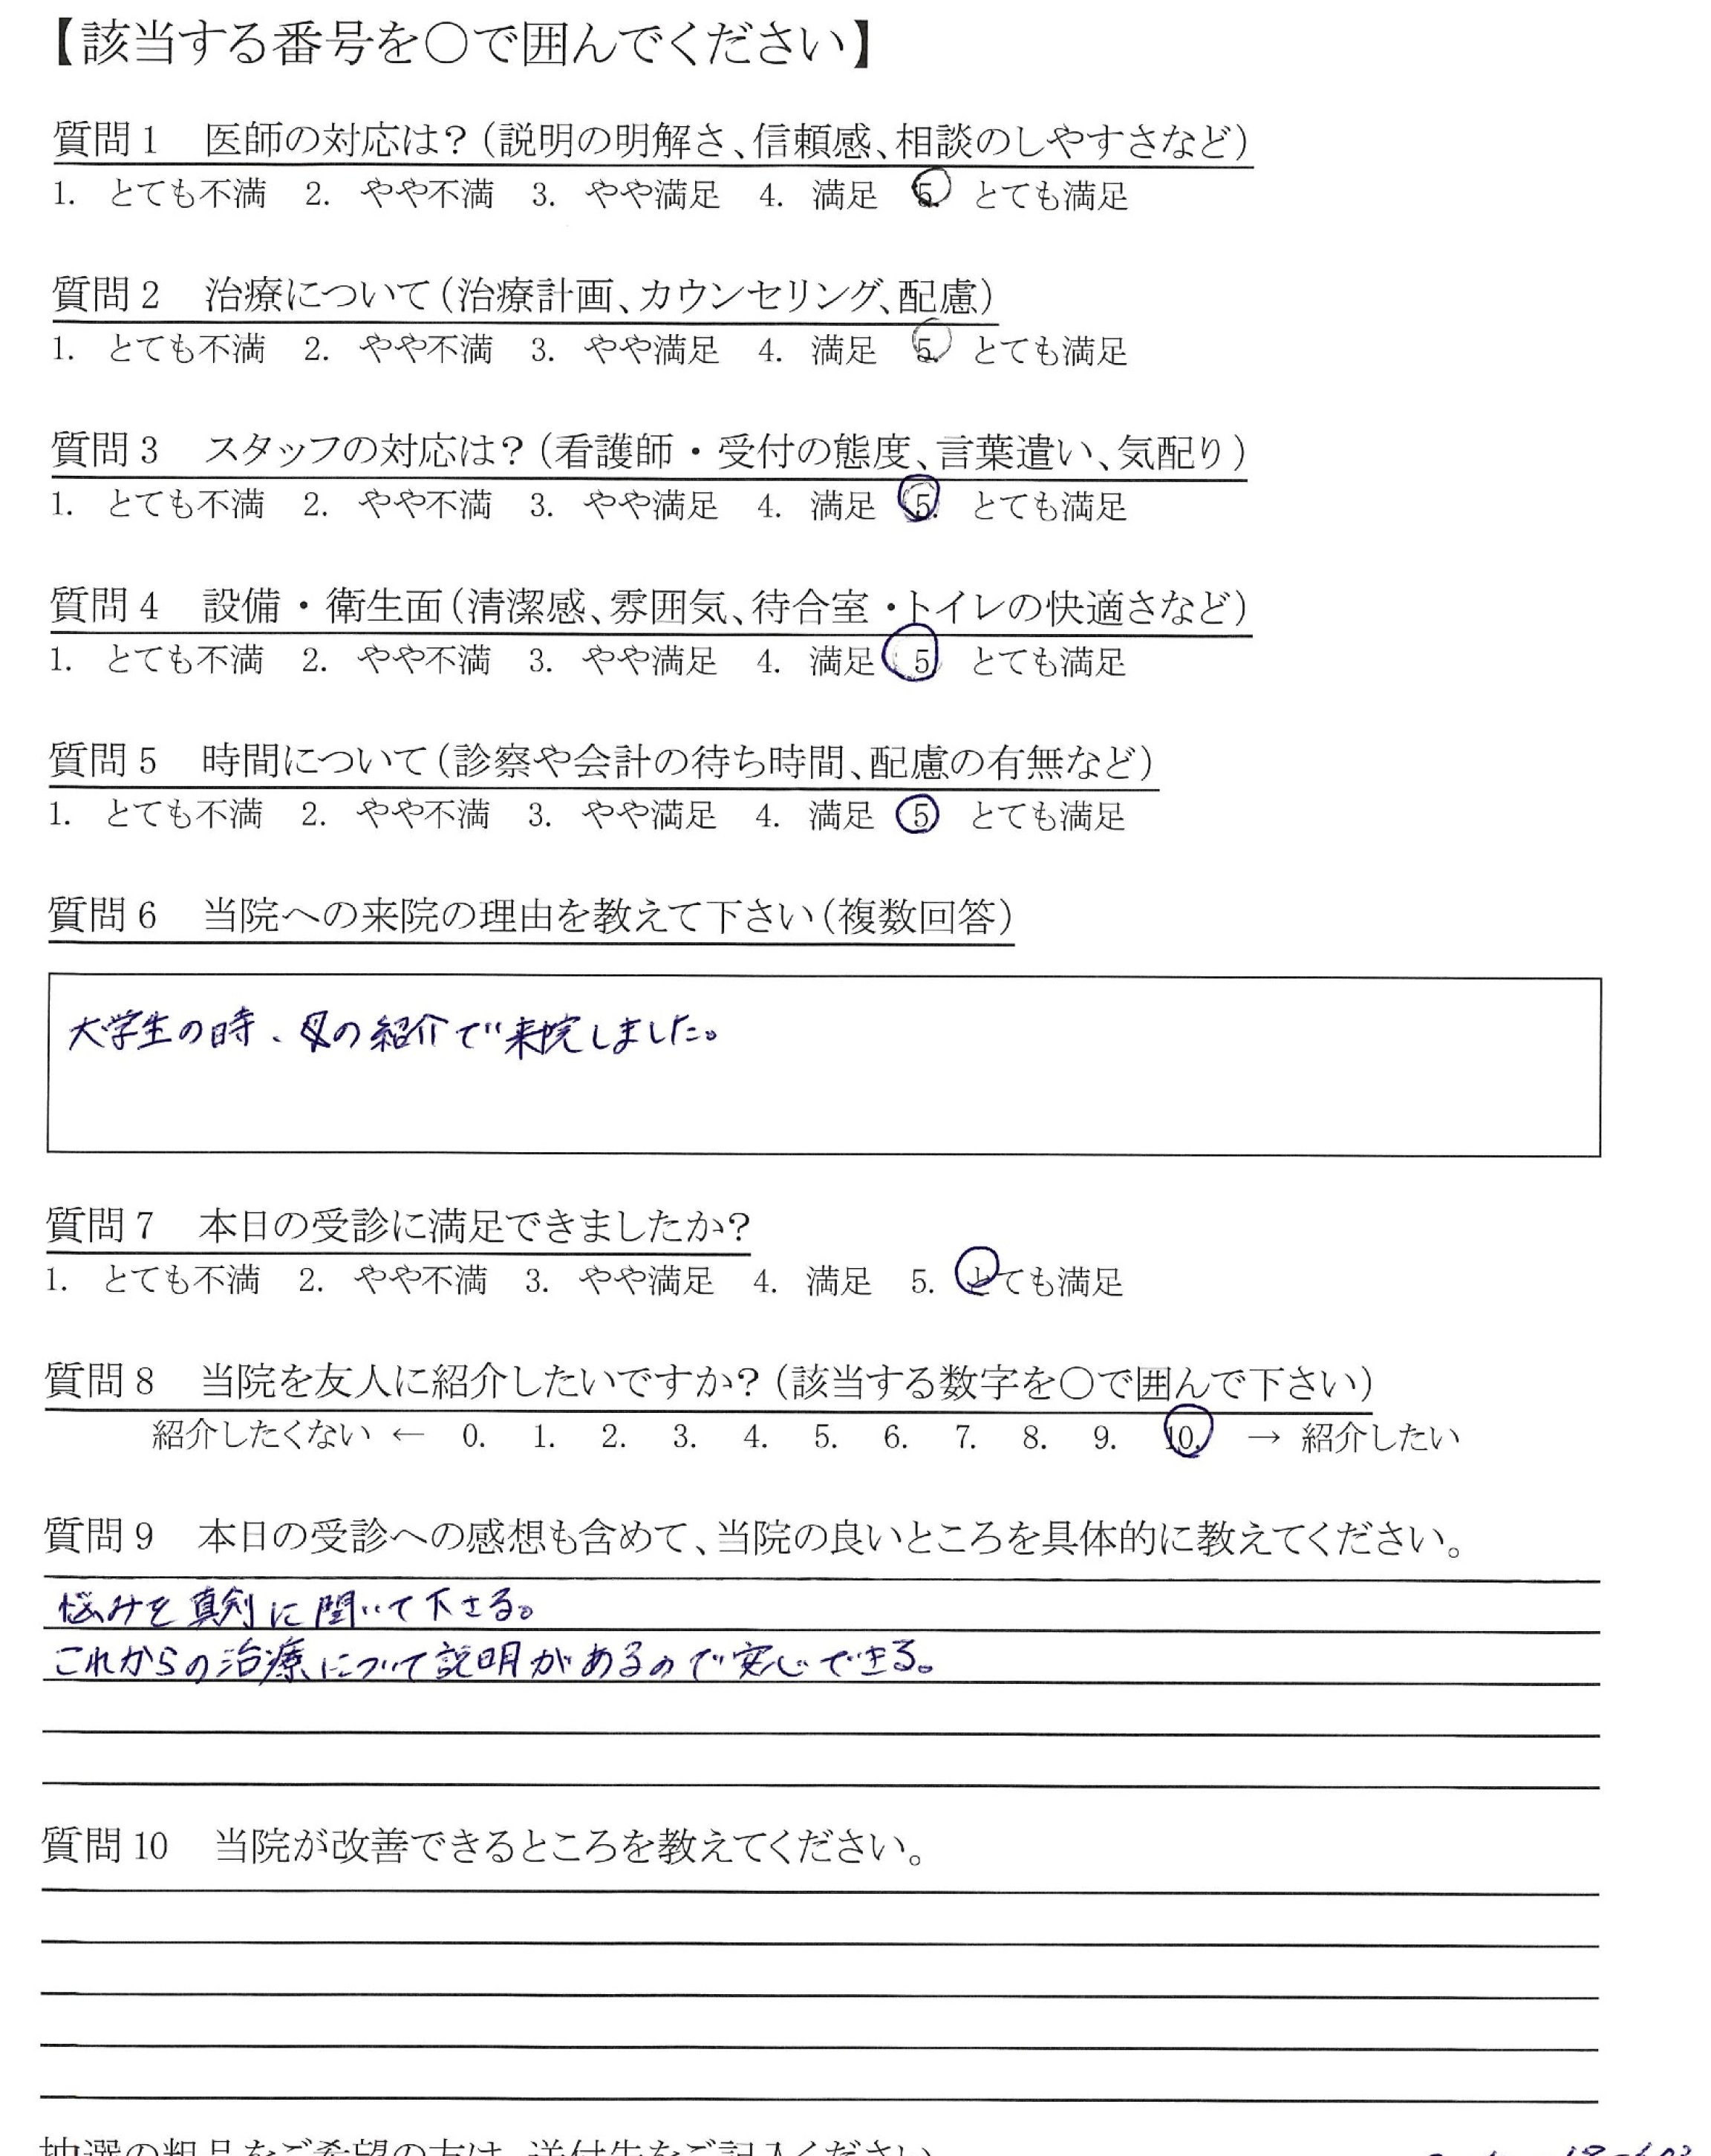 【該当する番号を〇で囲んでください】
質問1　医師の対応は？（説明の明解さ、信頼感、相談のしやすさなど）
1.　とても不満　2.　やや不満　3.　やや満足　4.　満足　5.　とても満足
質問2　治療について（治療計画、カウンセリング、配慮）
1.　とても不満　2.　やや不満　3.　やや満足　4.　満足　5.　とても満足
質問3　スタッフの対応は？（看護師・受付の態度、言葉遣い、気配り）
1.　とても不満　2.　やや不満　3.　やや満足　4.　満足　5.　とても満足
質問4　設備・衛生面（清潔感、雰囲気、待合室・トイレの快適さなど）
1.　とても不満　2.　やや不満　3.　やや満足　4.　満足　5.　とても満足
質問5　時間について（診察や会計の待ち時間、配慮の有無など）
1.　とても不満　2.　やや不満　3.　やや満足　4.　満足　5　とても満足
質問6　当院への来院の理由を教えて下さい（複数回答）
大学生の時、母の紹介で来院しました。
質問7　本日の受診に満足できましたか？
1.　とても不満　2.　やや不満　3.　やや満足　4.　満足　5.　とても満足
質問8　当院を友人に紹介したいですか？（該当する数字を〇で囲んで下さい）
紹介したくない ← 0.　1.　2.　3.　4.　5.　6.　7.　8.　9.　10.　→ 紹介したい
質問9　本日の受診への感想も含めて、当院の良いところを具体的に教えてください。
悩みを真剣に聞いて下さる。
これからの治療について説明があるので安心できる。
質問10　当院が改善できるところを教えてください。
抽選の粗品をご希望の方は、送付先をご記入ください